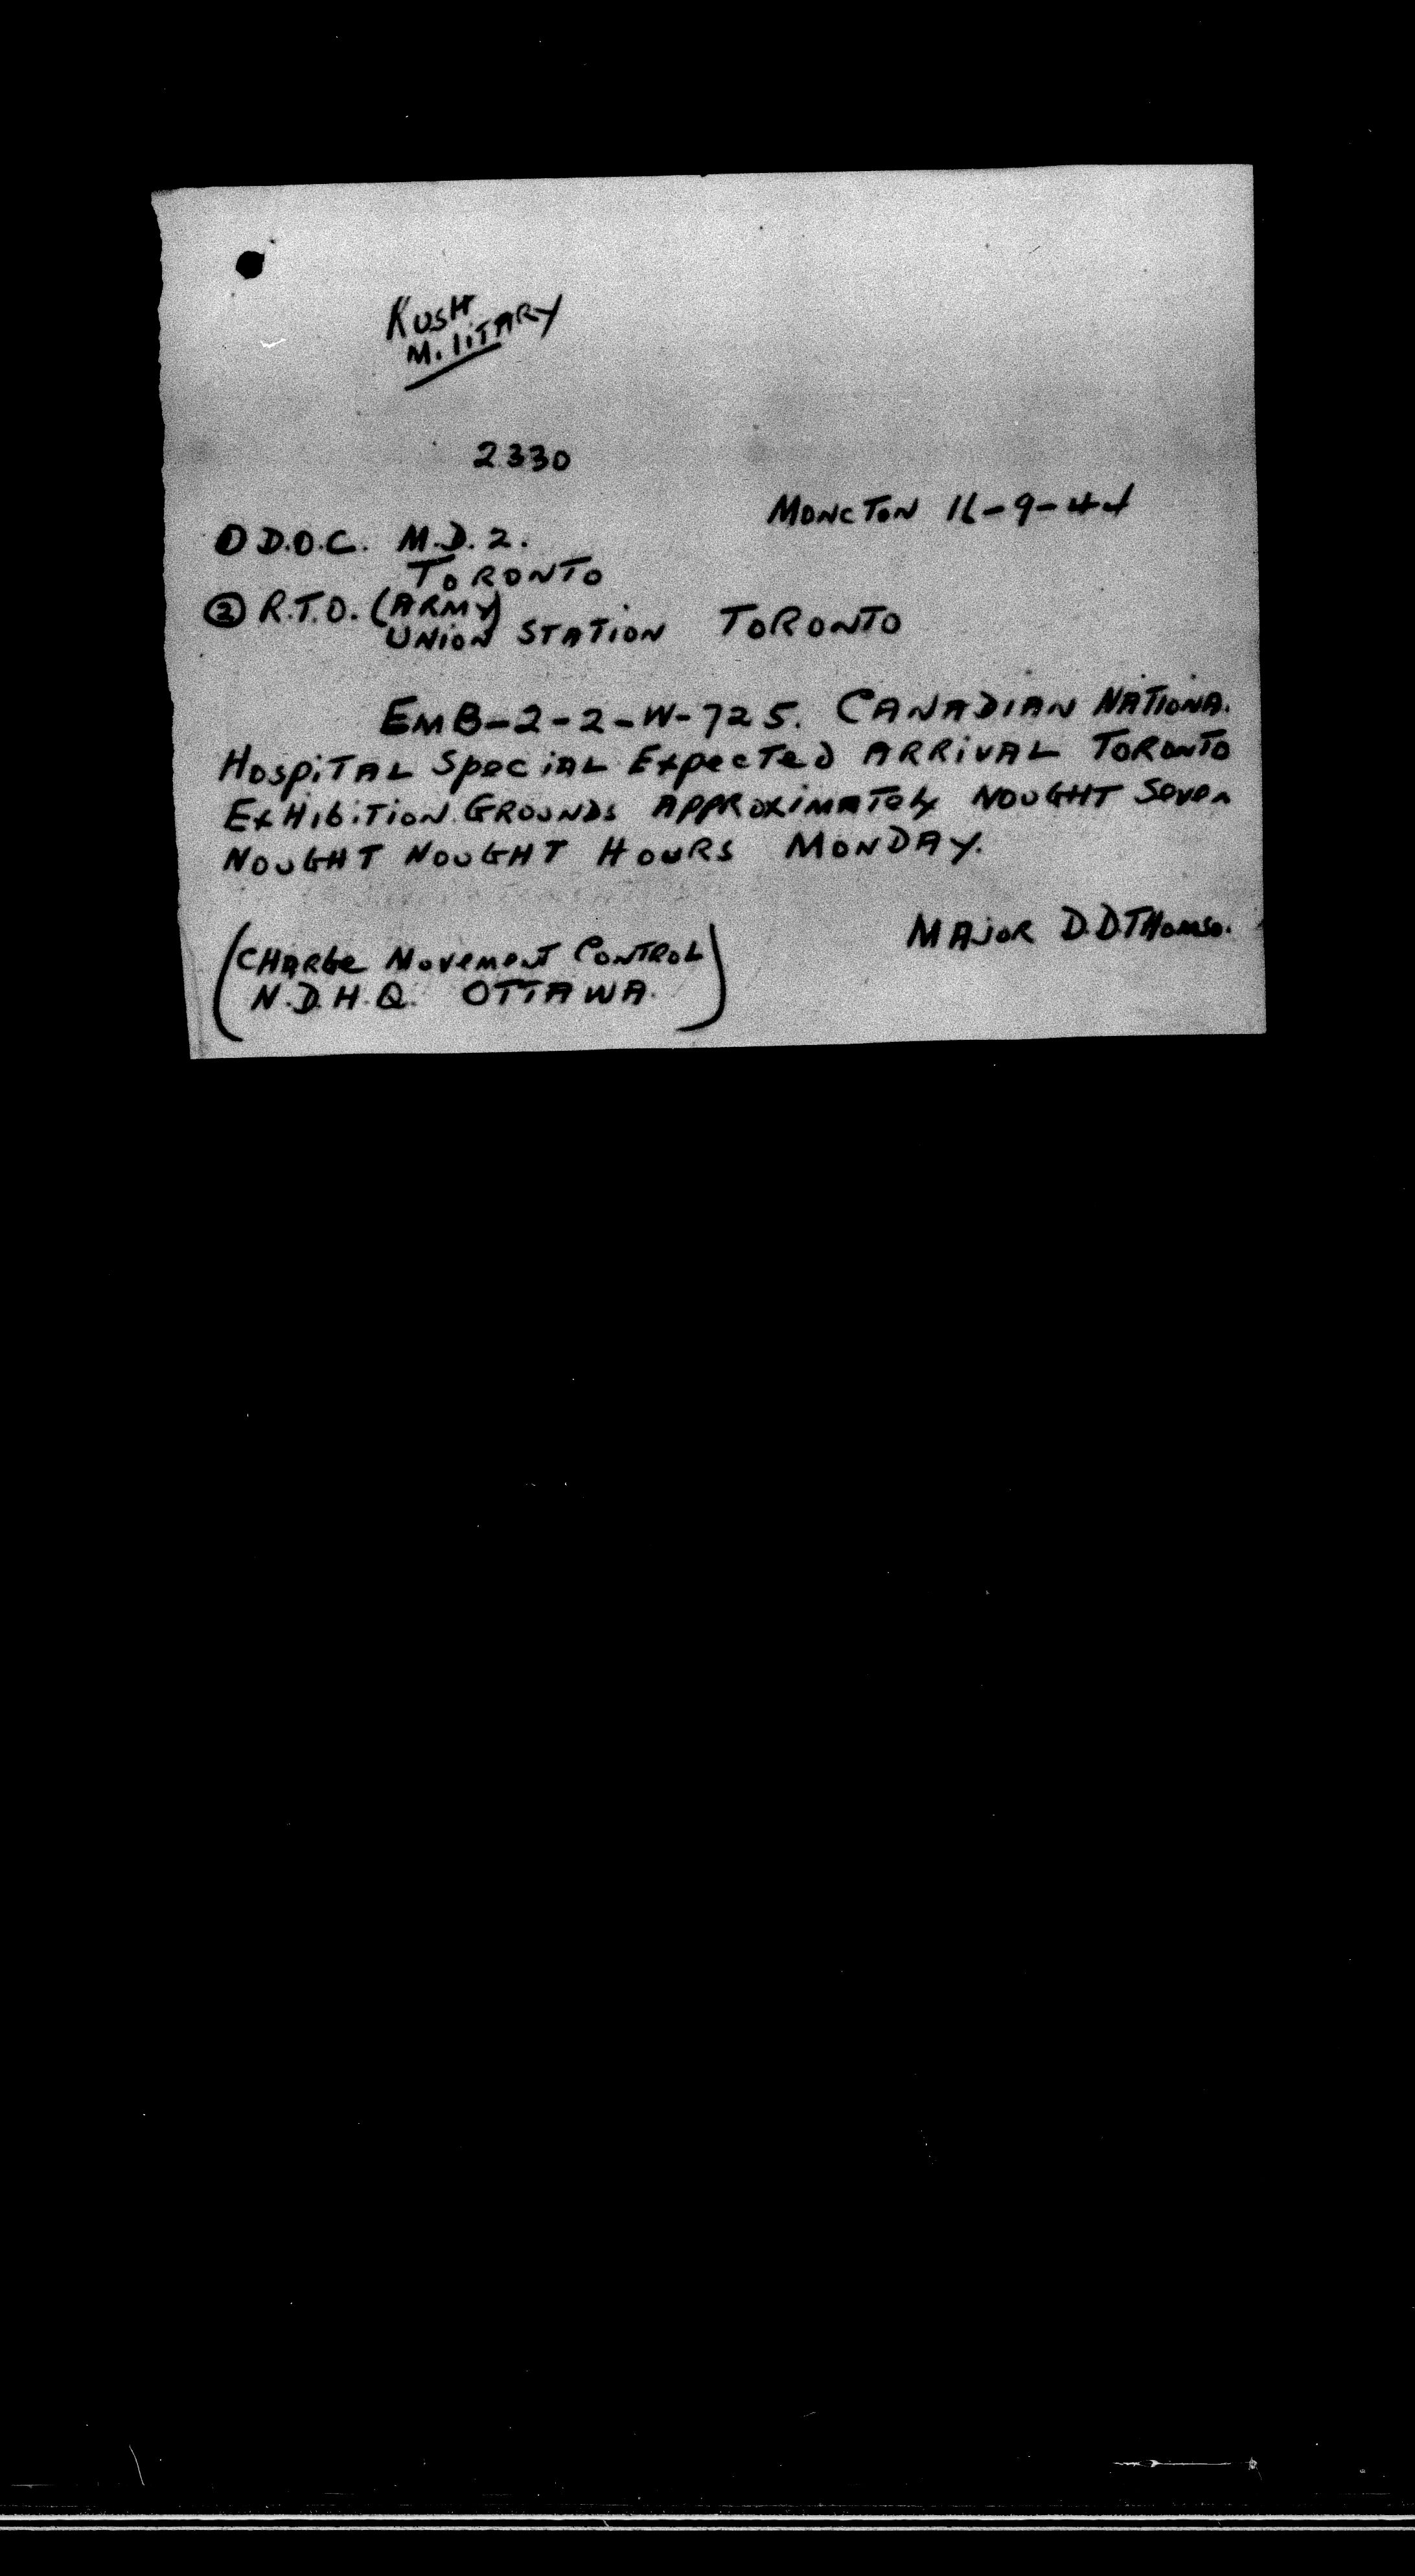 RUSH
MILITARY
2330
MONCTON 16-9-44
① D.O.C. M.D. 2.
TORONTO
② R.T.O. (ARMY)
UNION STATION TORONTO
EMB-2-2-W-725. CANADIAN NATIONA.
HOSPITAL SPECIAL EXPECTED ARRIVAL TORONTO
EXHIBITION GROUNDS APPROXIMATELY NOUGHT SEVEN
NOUGHT NOUGHT HOURS MONDAY.
MAJOR D.D. THOMSO.
(CHARGE MOVEMENT CONTROL
N.D.H.Q. OTTAWA.)